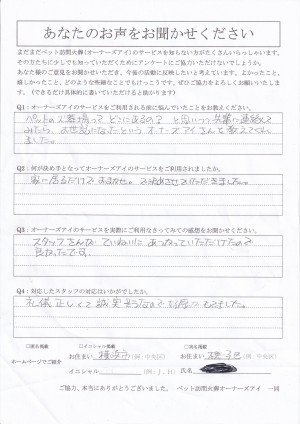 あなたのお声をお聞かせください
まだまだペット訪問火葬(オーナーズアイ)のサービスを知らない方がたくさんいらっしゃいます。
その方たちに少しでも知っていただくためにアンケートにご協力いただけないでしょうか。
あなた様のご意見をお聞かせいただき、今後の活動に反映したいと考えています。よかったこと、
嬉しかったこと、どのような些細なことでもけっこうです。ぜひご協力をよろしくお願いいたし
ます。(できるだけ具体的に書いていただけると助かります)
Q1：オーナーズアイのサービスをご利用される前に悩んでいたことをお教えください。
ペットの火葬場って どこにあるの? と思いつつ 先輩に連絡して
みたら、お世話になったという オーナーズアイさんを教えてくれ
ました。
Q2：何が決め手となってオーナーズアイのサービスをご利用されましたか。
家に居るだけで おまかせ。
Q3：オーナーズアイのサービスを実際にご利用なさってみての感想をお聞かせください。
スタッフさんが ていねいに あつかっていただけたので
良かったです。
Q4：対応したスタッフの対応はいかがでしたか。
礼儀 正しくて 誠実そうなので
□匿名掲載 □イニシャル掲載 □実名掲載
ホームページでご紹介 お住まい 横浜市 (例：中央区) お住まい 磯子区 (例：中央区)
イニシャル (例：J．H) 氏名
ご協力、本当にありがとうございました。 ペット訪問火葬オーナーズアイ 一同